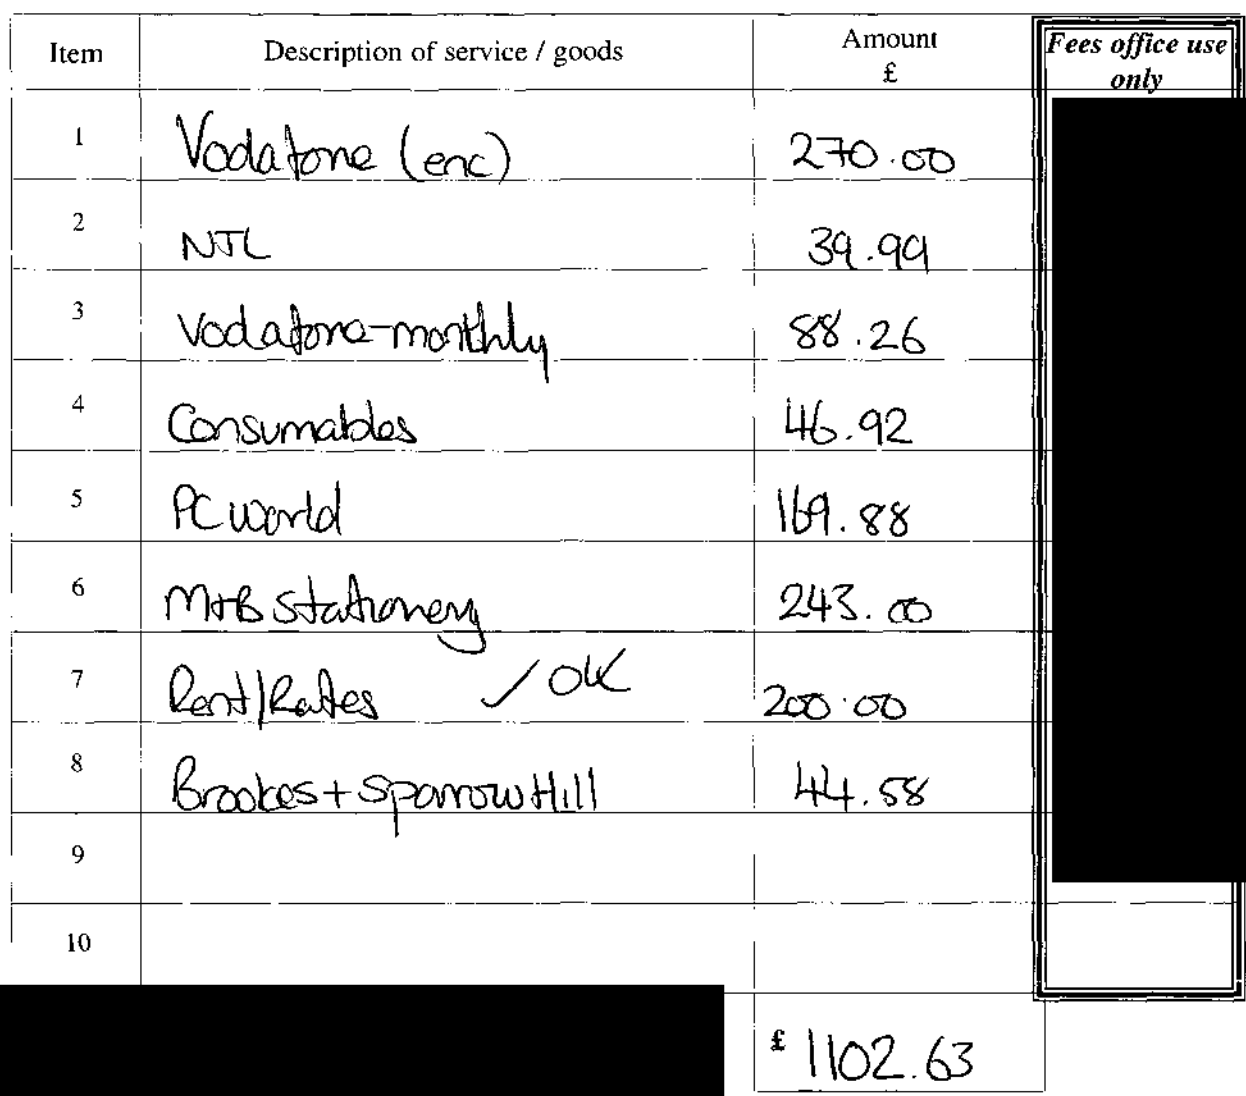 Item Description of service / goods Amount £ Fees office use only
1 Vodafone (enc) 270.00
2 NTL 39.99
3 Vodafone-monthly 88.26
4 Consumables 46.92
5 PC World 169.88
6 M+B Stationery 243.00
7 Rent/Rates ✓OK 200.00
8 Brookes + Sparrow Hill 44.58
9
10
£ 1102.63